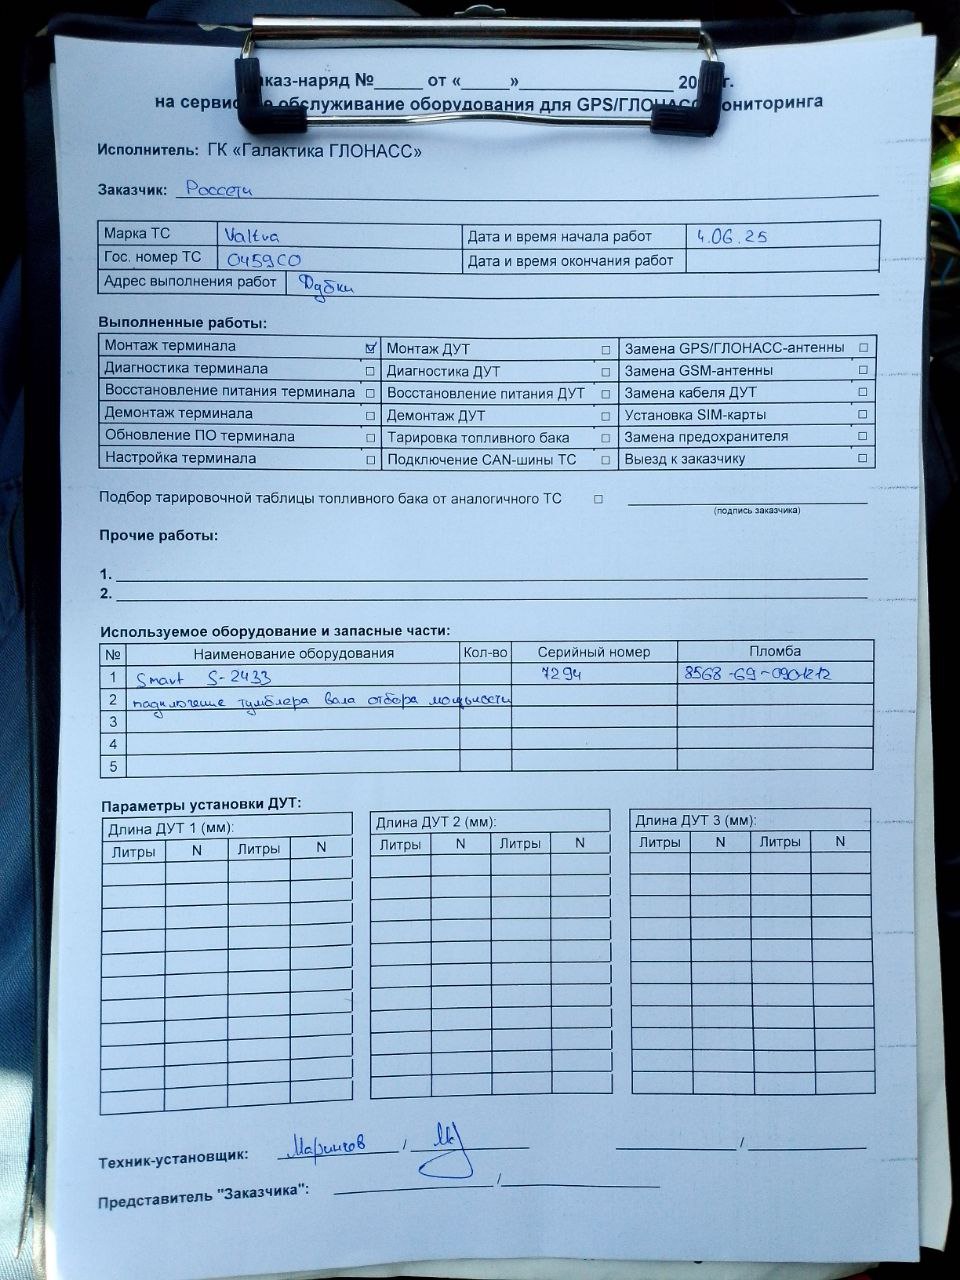 аказ-наряд №_____ от «_____»________________ 20 г.
на сервис е обслуживание оборудования для GPS/ГЛОНАСС ониторинга
Исполнитель: ГК «Галактика ГЛОНАСС»
Заказчик: Россети
Марка ТС Valtra Дата и время начала работ 4.06.25
Гос. номер ТС 0459СО Дата и время окончания работ
Адрес выполнения работ Дубки
Выполненные работы:
Монтаж терминала ☑ Монтаж ДУТ □ Замена GPS/ГЛОНАСС-антенны □
Диагностика терминала □ Диагностика ДУТ □ Замена GSM-антенны □
Восстановление питания терминала □ Восстановление питания ДУТ □ Замена кабеля ДУТ □
Демонтаж терминала □ Демонтаж ДУТ □ Установка SIM-карты □
Обновление ПО терминала □ Тарировка топливного бака □ Замена предохранителя □
Настройка терминала □ Подключение CAN-шины ТС □ Выезд к заказчику □
Подбор тарировочной таблицы топливного бака от аналогичного ТС □
(подпись заказчика)
Прочие работы:
1.
2.
Используемое оборудование и запасные части:
№ Наименование оборудования Кол-во Серийный номер Пломба
1 Smart S-2433 7294 8568-69-
2 подключение тумблера вала отбора мощьности
3
4
5
Параметры установки ДУТ:
Длина ДУТ 1 (мм): Длина ДУТ 2 (мм): Длина ДУТ 3 (мм):
Литры N Литры N Литры N Литры N Литры N Литры N
Техник-установщик: / /
Представитель "Заказчика": /